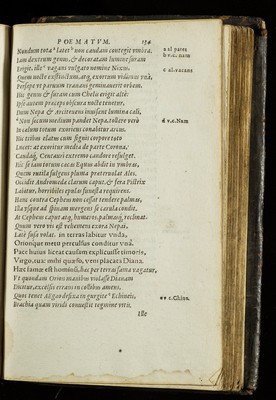 POEMATVM. 154
Nondum tota latet non caudam contegit vmbra.
Iam dextrum genus, & decoratam lumine suram
Erigit, ille vagans vulgato nomine Nixus.
Quem nocte extinctum, atq, exortum vidimus vnà,
Persæpe vt paruum tranans geminauerit orbem.
Hic genus & suram cum Chelis erigit altè:
Ipse autem præceps obscura nocte tenetur,
Dum Nepa & Arcitenens inuisant lumina cæli,
Non secum medium pandet Nepa, tollere verò
In cælum totum exoriens conabitur arcum.
Hic tribus elatus cum signis corpore toto
Lucet: at exoritur media de parte Corona,
Caudaq, Centauri extremo candore refulget.
Hic se iam totum cæcas Equus abdit in vmbras,
Quem rutila fulgens pluma præteruolat Ales.
Occidit Andromeda clarum caput, & fera Pistrix
Labitur, horribiles epulas funesta requirens.
Hanc contra Cepheus non cessat tendere palmas,
Illa vsque ad spinam mergens se cærula condit,
At Cepheus caput atq, humeros palmasq, reclinat.
Quum verò vis est vehemens exora Nepai,
Late fusa volat. in terras labitur vnda,
Orionque metu perculsus conditur vnà.
Pace huius liceat causam explicuisse timoris,
Virgo, tua: mihi quæso, veni placata Diana.
Hæc fama est hominū, hæc per terras fama vagatur,
Vt quondam Orion manibus violasse Dianam
Dicitur, excelsis errans in collibus amens,
Quos tenet Aegæo defixa in gurgite Echineis,
Brachia quam viridi conuestit tegmine vitis.
Ille
a al partē
b v.c. nam
c al. vacans
d v.c. Nam
e v.c. Chius.